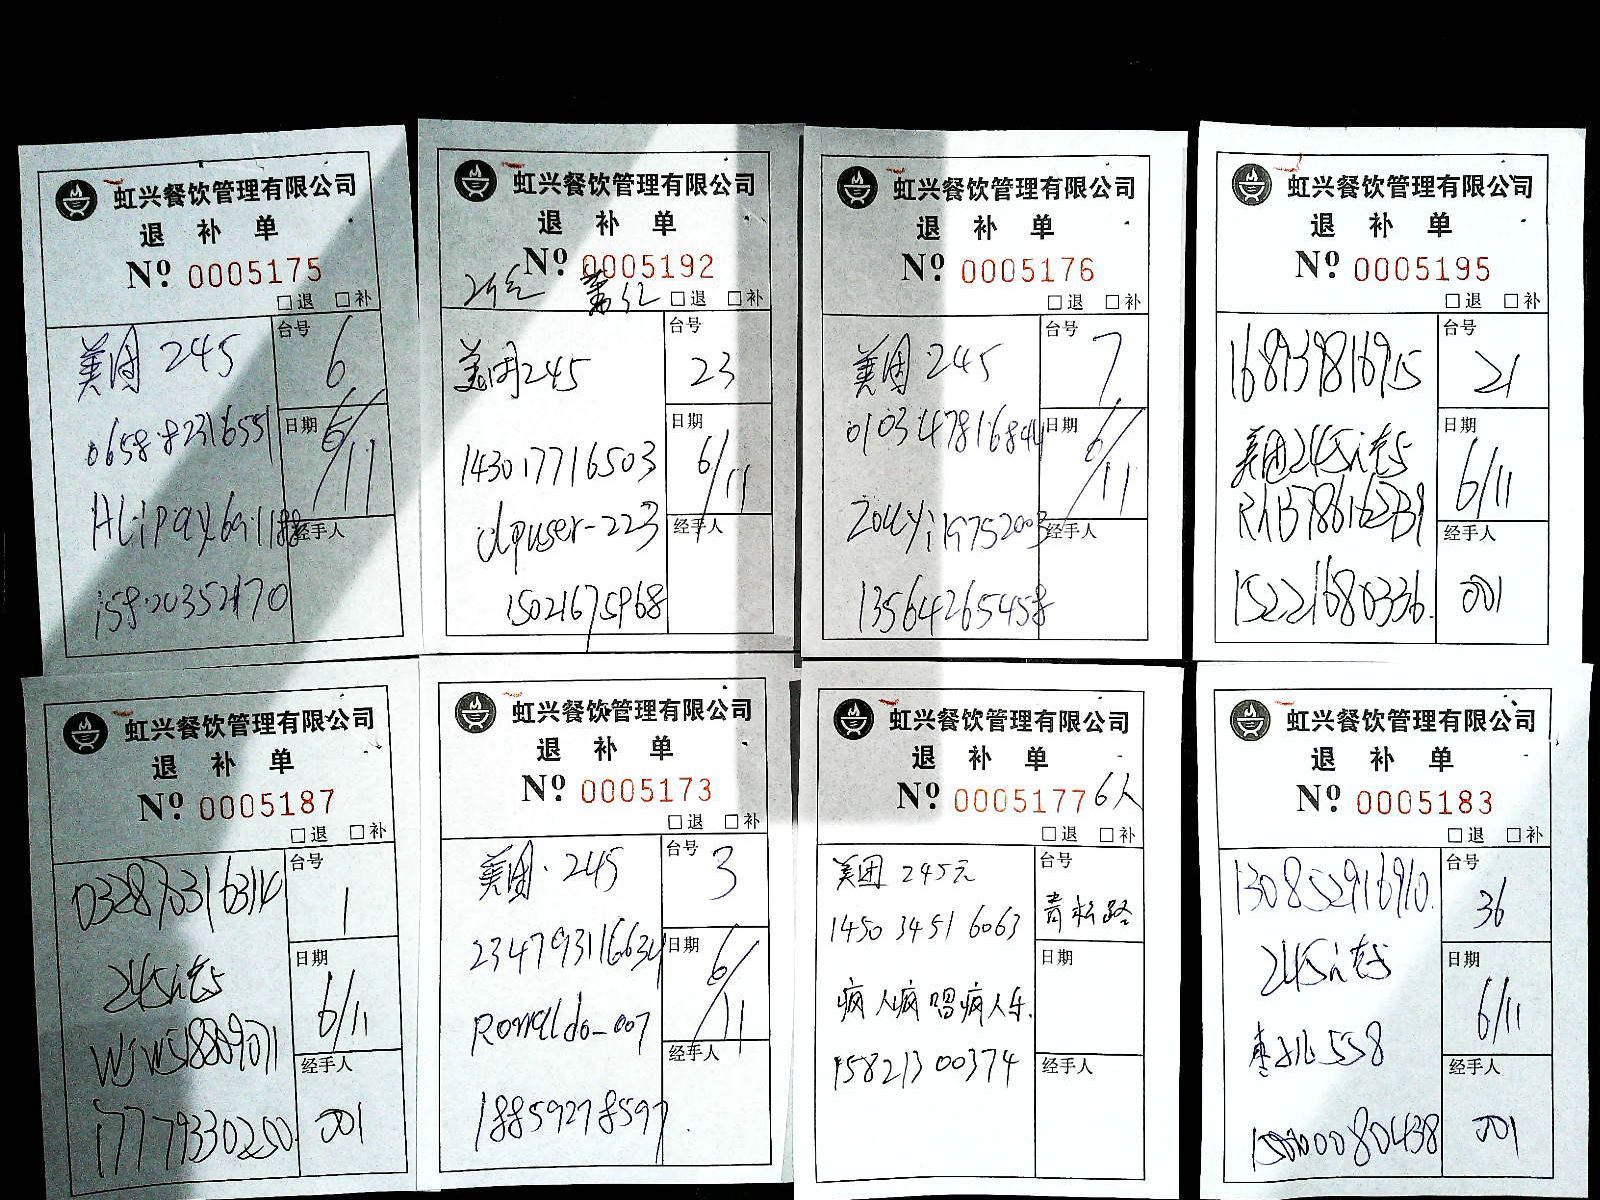 虹兴餐饮管理有限公司
退补单
Nº 0005175
□退 □补
美团 245
台号
6
0658 8231 6551
日期
6/11
ALipay69.1188
经手人
15820352170
虹兴餐饮管理有限公司
退补单
Nº 0005192
□退 □补
美团245
台号
23
143017716503
日期
6/11
dpuser-223
经手人
15021675968
虹兴餐饮管理有限公司
退补单
Nº 0005176
□退 □补
美团 245
台号
7
0103 4781 6844
日期
6/11
经手人
13564265458
虹兴餐饮管理有限公司
退补单
Nº 0005195
□退 □补
168939816915
台号
21
美团245
日期
6/11
经手人
15221680336
001
虹兴餐饮管理有限公司
退补单
Nº 0005187
□退 □补
台号
1
245
日期
6/11
WJWJ18889071
经手人
17779330250
001
虹兴餐饮管理有限公司
退补单
Nº 0005173
□退 □补
美团·245
台号
3
234793116634
日期
6/11
Ronaldo-007
经手人
18859278597
虹兴餐饮管理有限公司
退补单
Nº 0005177 6人
□退 □补
美团 245元
台号
青松路
1450 3451 6063
日期
疯人疯唱疯人乐.
经手人
15821300374
虹兴餐饮管理有限公司
退补单
Nº 0005183
□退 □补
130852916910
台号
36
245
日期
6/11
558
经手人
001